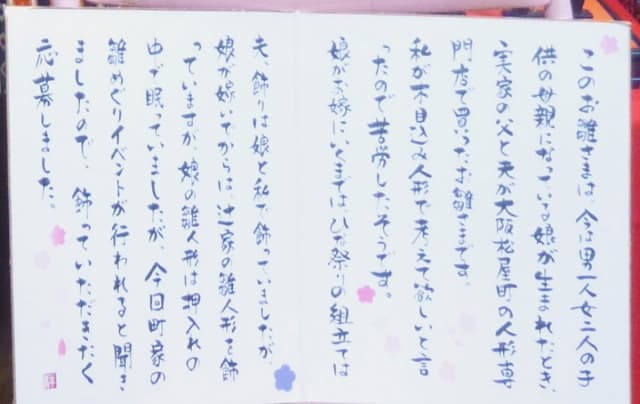 このお雛さまは、今は男一人女二人の子
供の母親になっている娘が生まれたとき、
実家の父と夫が大阪松屋町の人形専
門店で買ったお雛さまです。
私が木目込み人形で考えて欲しいと言
ったので苦労したそうです。
娘がお嫁にいくまではひな祭りの組立ては
夫、飾りは娘と私で飾っていましたが、
娘が嫁いでからは、辻家の雛人形を飾
っていますが、娘の雛人形は押入れの
中で眠っていましたが、今回町家の
雛めぐりイベントが行われると聞き
ましたので、飾っていただきたく
応募しました。